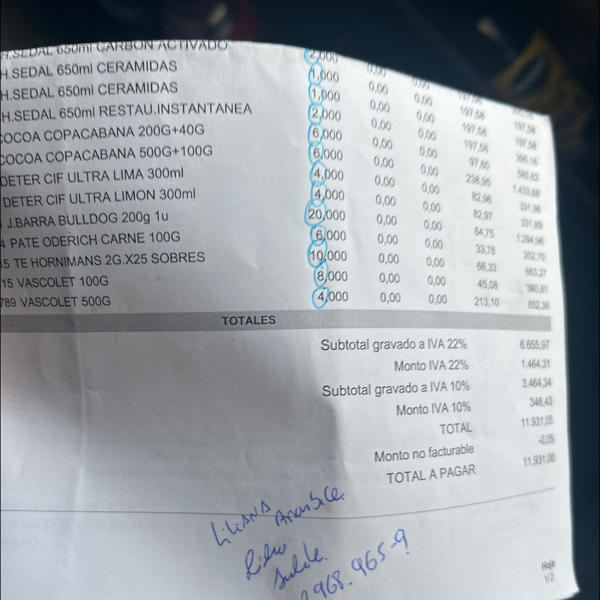 H.SEDAL 650ml CARBON ACTIVADO 2,000 0,00
H.SEDAL 650ml CERAMIDAS 1,000 0,00 0,00 197,58
H.SEDAL 650ml CERAMIDAS 1,000 0,00 0,00 197,58 197,58
H.SEDAL 650ml RESTAU.INSTANTANEA 2,000 0,00 0,00 197,58
COCOA COPACABANA 200G+40G 6,000 0,00 0,00 97,60
COCOA COPACABANA 500G+100G 6,000 0,00 0,00 238,95
DETER CIF ULTRA LIMA 300ml 4,000 0,00 0,00 82,96
DETER CIF ULTRA LIMON 300ml 4,000 0,00 0,00 82,97
J.BARRA BULLDOG 200g 1u 20,000 0,00 0,00 64,75
4 PATE ODERICH CARNE 100G 6,000 0,00 0,00 33,78 202,70
15 TE HORNIMANS 2G.X25 SOBRES 10,000 0,00 0,00 66,33
15 VASCOLET 100G 8,000 0,00 0,00 45,08 360,61
789 VASCOLET 500G 4,000 0,00 0,00 213,10
TOTALES
Subtotal gravado a IVA 22% 6.655,97
Monto IVA 22% 1.464,31
Subtotal gravado a IVA 10% 3.464,34
Monto IVA 10% 346,43
TOTAL 11.931,05
Monto no facturable -0,05
TOTAL A PAGAR 11.931,00
LiLiANA
968.965-9
Hoja
1/2